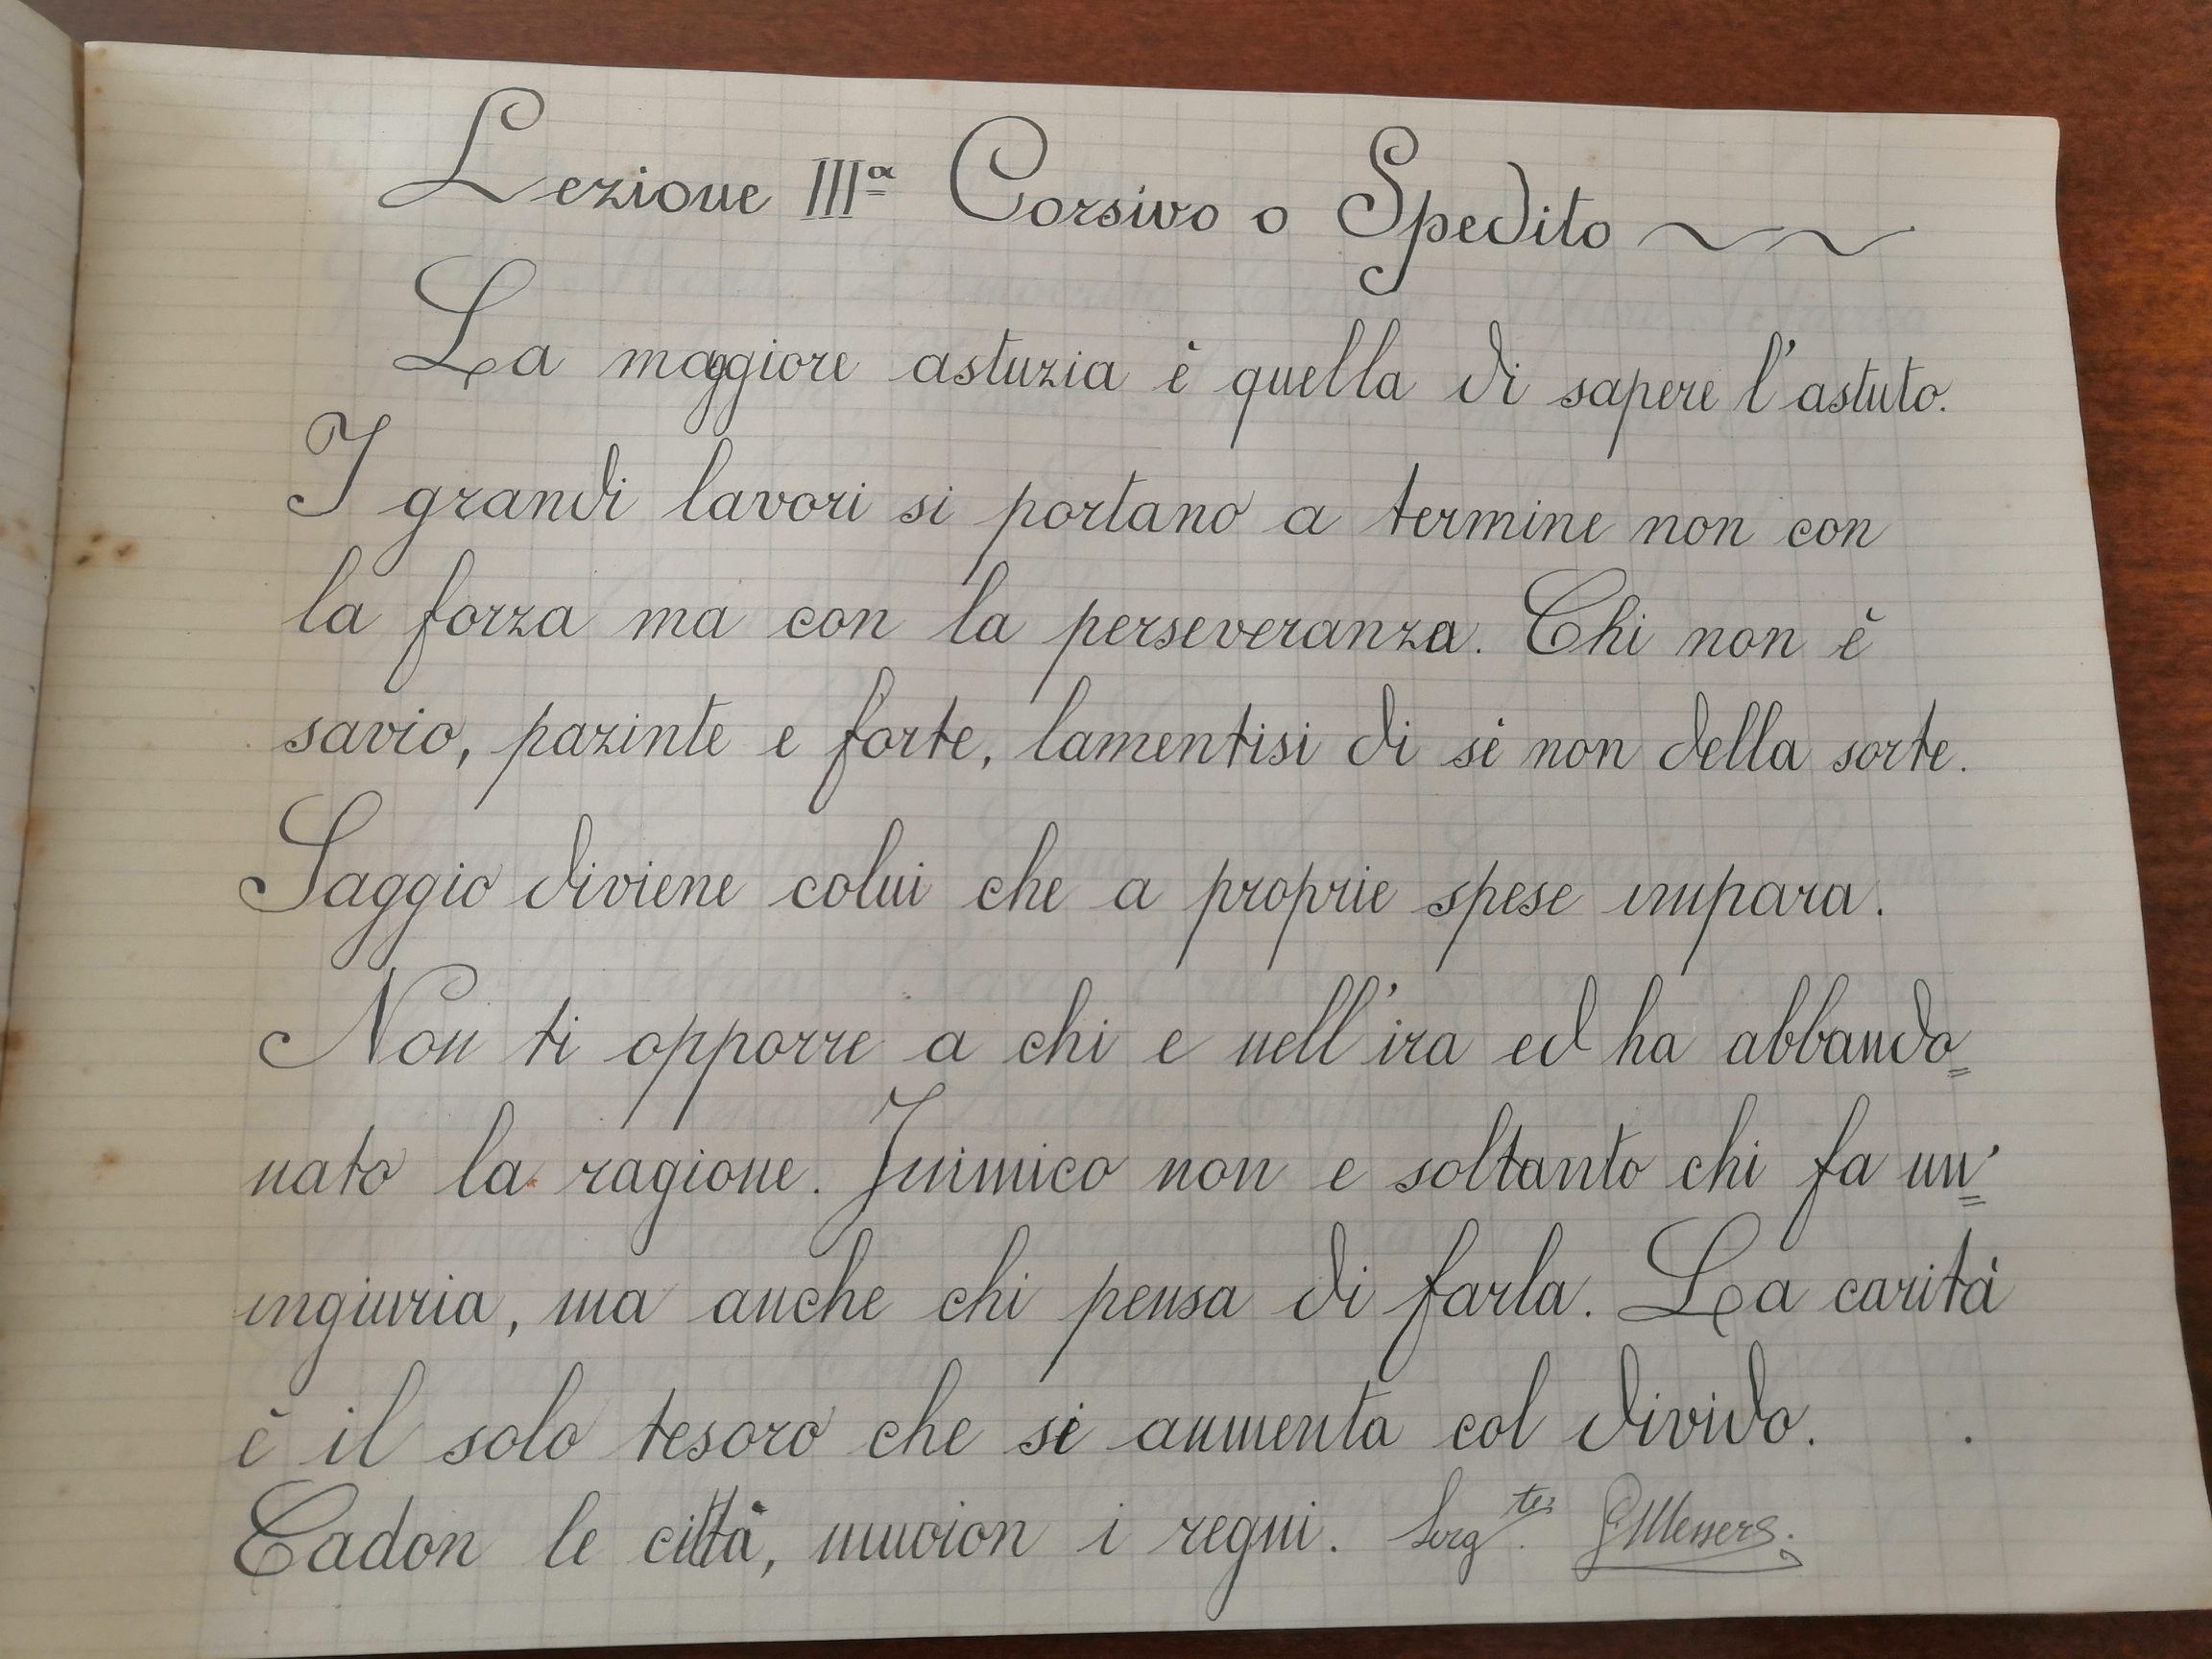 Lezione IIIª Corsivo o Spedito
La maggiore astuzia è quella di sapere l'astuto.
I grandi lavori si portano a termine non con
la forza ma con la perseveranza. Chi non è
savio, pazinte e forte, lamentisi di sè non della sorte.
Saggio diviene colui che a proprie spese impara.
Non ti opporre a chi e nell'ira ed ha abbando=
nato la ragione. Inimico non e soltanto chi fa un'=
ingiuria, ma anche chi pensa di farla. La carità
è il solo tesoro che si aumenta col divido.
Cadon le città, muoion i regni. Serg.te